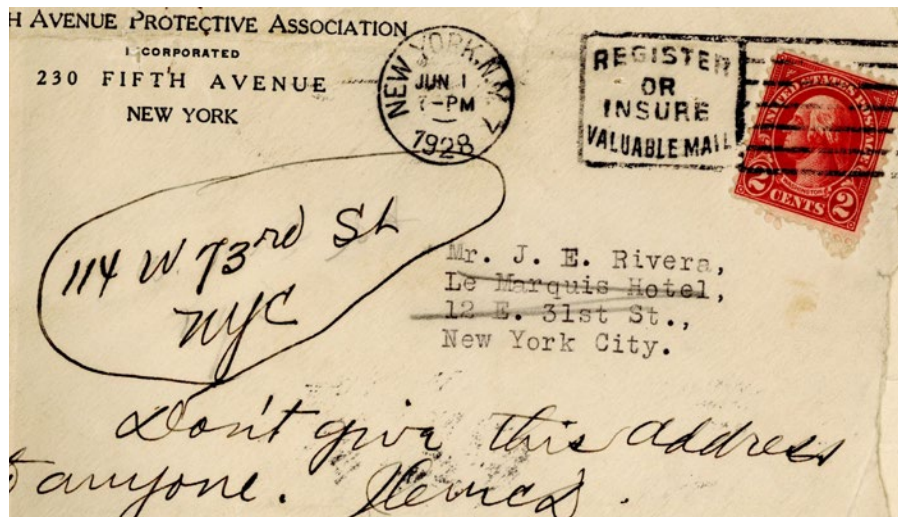 H AVENUE PROTECTIVE ASSOCIATION
INCORPORATED
230 FIFTH AVENUE
NEW YORK
NEW YORK, N.Y.
JUN 1
7-PM
1928
REGISTER
OR
INSURE
VALUABLE MAIL
UNITED STATES POSTAGE
WASHINGTON
2 CENTS 2
114 W 73rd St
NYC
Mr. J. E. Rivera,
Le Marquis Hotel,
12 E. 31st St.,
New York City.
Don't give this address
anyone.